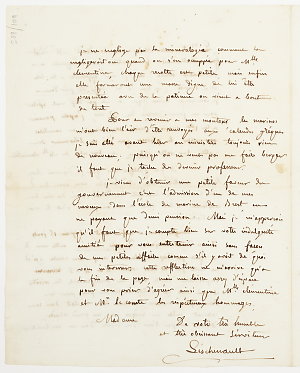 je ne neglige pas la mineralogie comme on
negligeroit un quand on s'en occupe pour Mlle
clementine chaque recolte est petite mais enfin
elle formeront une masse digne de lui être
presentée avec de la patience on vient a bout
de tout
Pour en revenir a mes moutons les marins
m'ont bien l'air d'être renvoyés aux calendes grecques
je suis allé avant hier au ministere toujours rien
de nouveau, puisqu'on ne veut pas me faire voyager
il faut que je tache de devenir professeur.
je viens d'obtenir une petite faveur du
gouvernement c'est l'admission d'un de mes
neveux dans l'ecole de marine de Brest en
ne payant que demi pension. Mais je m'apperçois
qu'il faut que je compte bien sur votre indulgente
amitié pour vous entretenir ainsi sans façon
de mes petites affaires comme s'il y avoit de quoi
vous interesser, cette reflection ne m'arrive qu'a
la fin de la page mais me laisse assez d'espace
pour vous prier d'agréer ainsi que Mlle clementine
et Mr le comte les respectueux hommages,
Madame
De votre très humble
et très obeissant serviteur
Leschenault